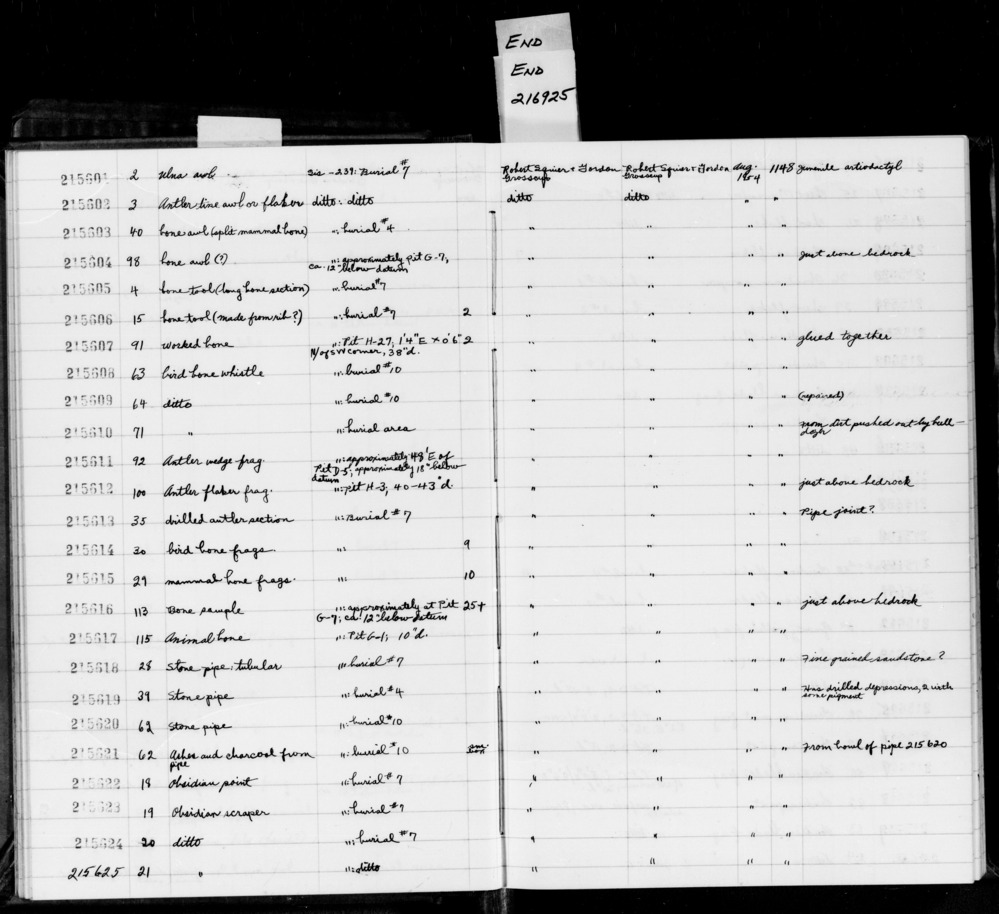 END
END
216925
215601 2 Ulna awl Sis-239: Burial #7 Robert Squier + Gordon Robert Squier + Gordon Aug. 1148 juvenile artiodactyl
Grosscup Grosscup
215602 3 Antler tine awl or flaker ditto: ditto ditto ditto " "
215603 40 bone awl (split mammal bone) ": burial #4 " " " "
215604 98 bone awl (?) ": approximately pit G-7, " " " " just above bedrock
ca. 12" below datum
215605 4 bone tool (long bone section) ": burial #7 " " " "
215606 15 bone tool (made from rib?) ": burial #7 2 " " " "
215607 91 worked bone ": Pit H-27, 1'4"E x 0'6" 2 " " " " glued together
N/of SW corner, 38"d.
215608 63 bird bone whistle ": burial #10 " " " "
215609 64 ditto ": burial #10 " " " " (repaired)
215610 71 " ": burial area " " " " From dirt pushed out by bull-
215611 92 Antler wedge frag. ": approximately 48' E of " " " "
Pit D-5; approximately 18" below
datum
215612 100 Antler flaker frag. ": Pit H-3, 40-43"d. " " " " just above bedrock
215613 35 drilled antler section ": Burial #7 " " " " Pipe joint?
215614 30 bird bone frags. ": 9 " " " "
215615 29 mammal bone frags. ": 10 " " " "
215616 113 Bone sample ": approximately at Pit 25+ " " " " just above bedrock
G-7; ca. 12" below datum
215617 115 Animal bone ": Pit G-1; 10"d. " " " "
215618 28 Stone pipe, tubular ": burial #7 " " " " Fine grained sandstone?
215619 39 Stone pipe ": burial #4 " " " " Has drilled depressions, 2 with
some pigment
215620 62 Stone pipe ": burial #10 " " " "
215621 62 Ashes and charcoal from ": burial #10 " " " " From bowl of pipe 215620
pipe
215622 18 Obsidian point ": burial #7 " " " "
215623 19 Obsidian scraper ": burial #7 " " " "
215624 20 ditto ": burial #7 " " " "
215625 21 " ": ditto " " " "